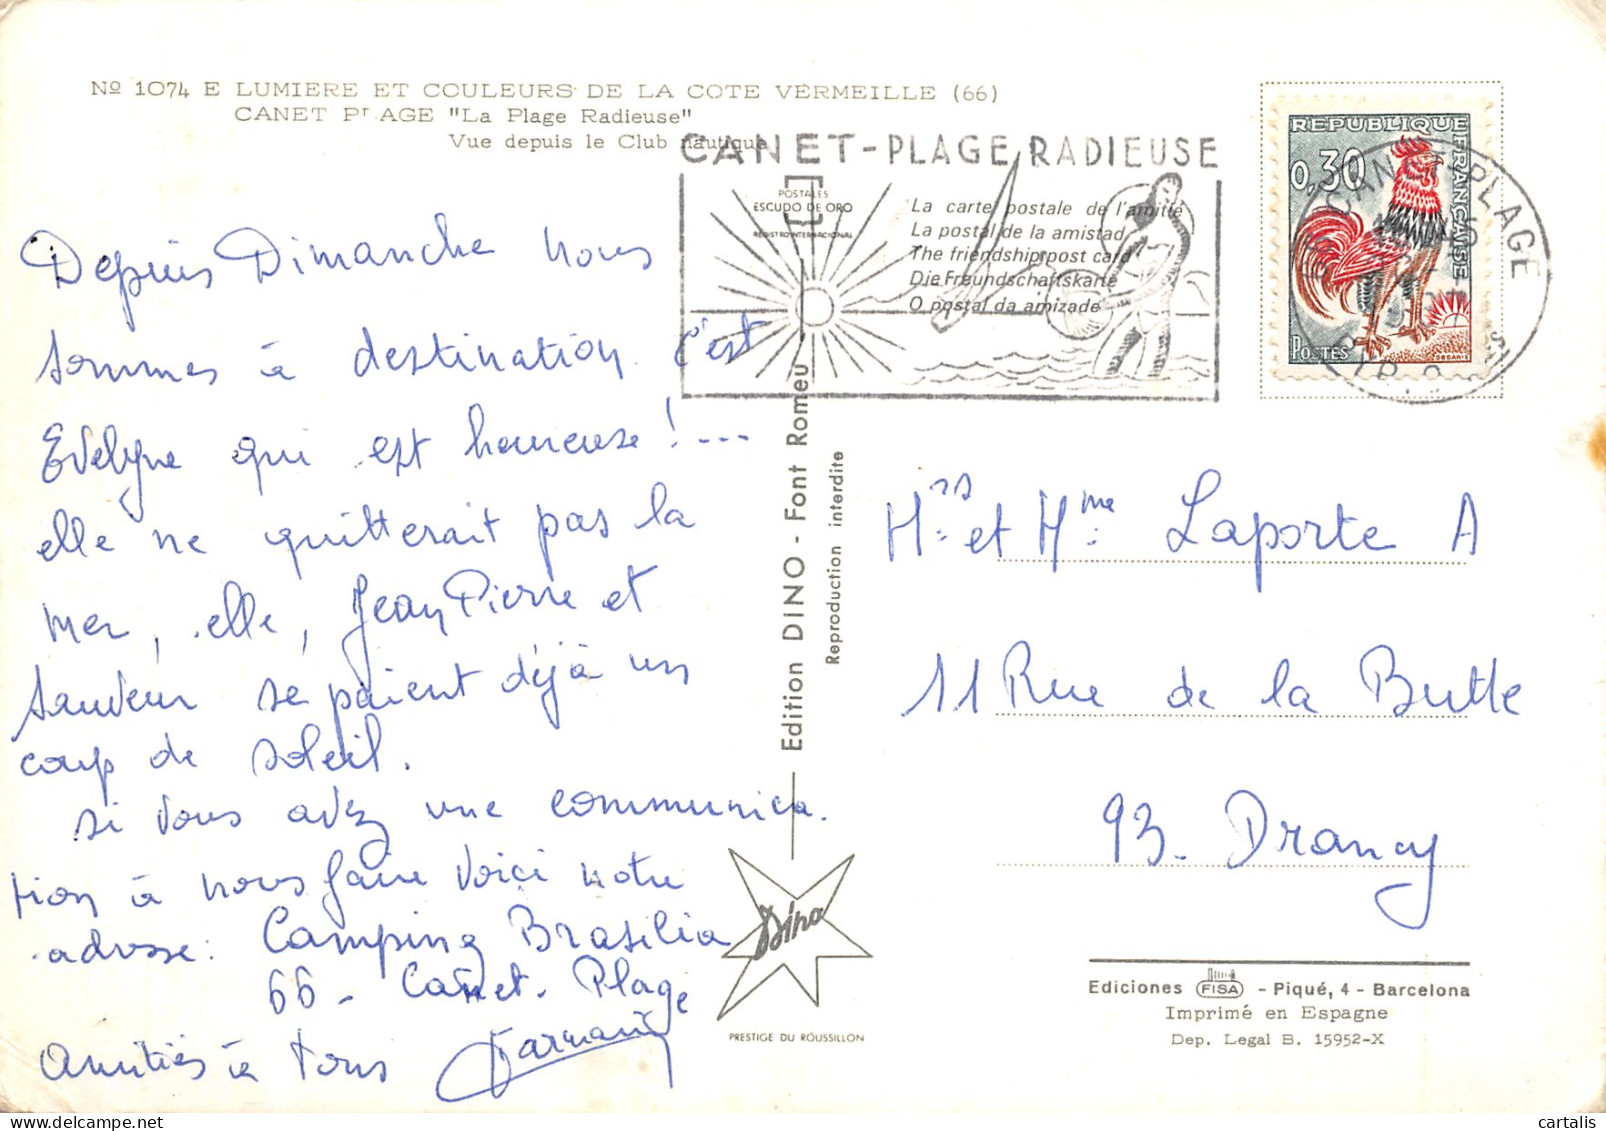 Nº 1074 E LUMIERE ET COULEURS DE LA COTE VERMEILLE (66)
CANET Pᵀ AGE "La Plage Radieuse"
Vue depuis le Club nautique
CANET-PLAGE RADIEUSE
POSTALES
ESCUDO DE ORO
REGISTRO INTERNACIONAL
La carte postale de l'amitié
La postal de la amistad
The friendship post card
Die Freundschaftskarte
O postal da amizade
REPUBLIQUE FRANÇAISE
0,30
POSTES
DECARIS
CANET-PLAGE
Depuis Dimanche nous
sommes à destination c'est
Evelyne qui est heureuse !---
elle ne quitterait pas la
mer, elle, Jean Pierre et
Sauveur se paient déjà un
coup de soleil.
si vous avez une communica.
tion à nous faire voici notre
adresse: Camping Brasilia
66 - Canet. Plage
Amitiés à tous
Edition DINO - Font Romeu
Reproduction interdite
Dino
PRESTIGE DU ROUSSILLON
Mrs et Mme Laporte A
11 Rue de la Butte
93. Drancy
Ediciones FISA - Piqué, 4 - Barcelona
Imprimé en Espagne
Dep. Legal B. 15952-X
cartalis.com